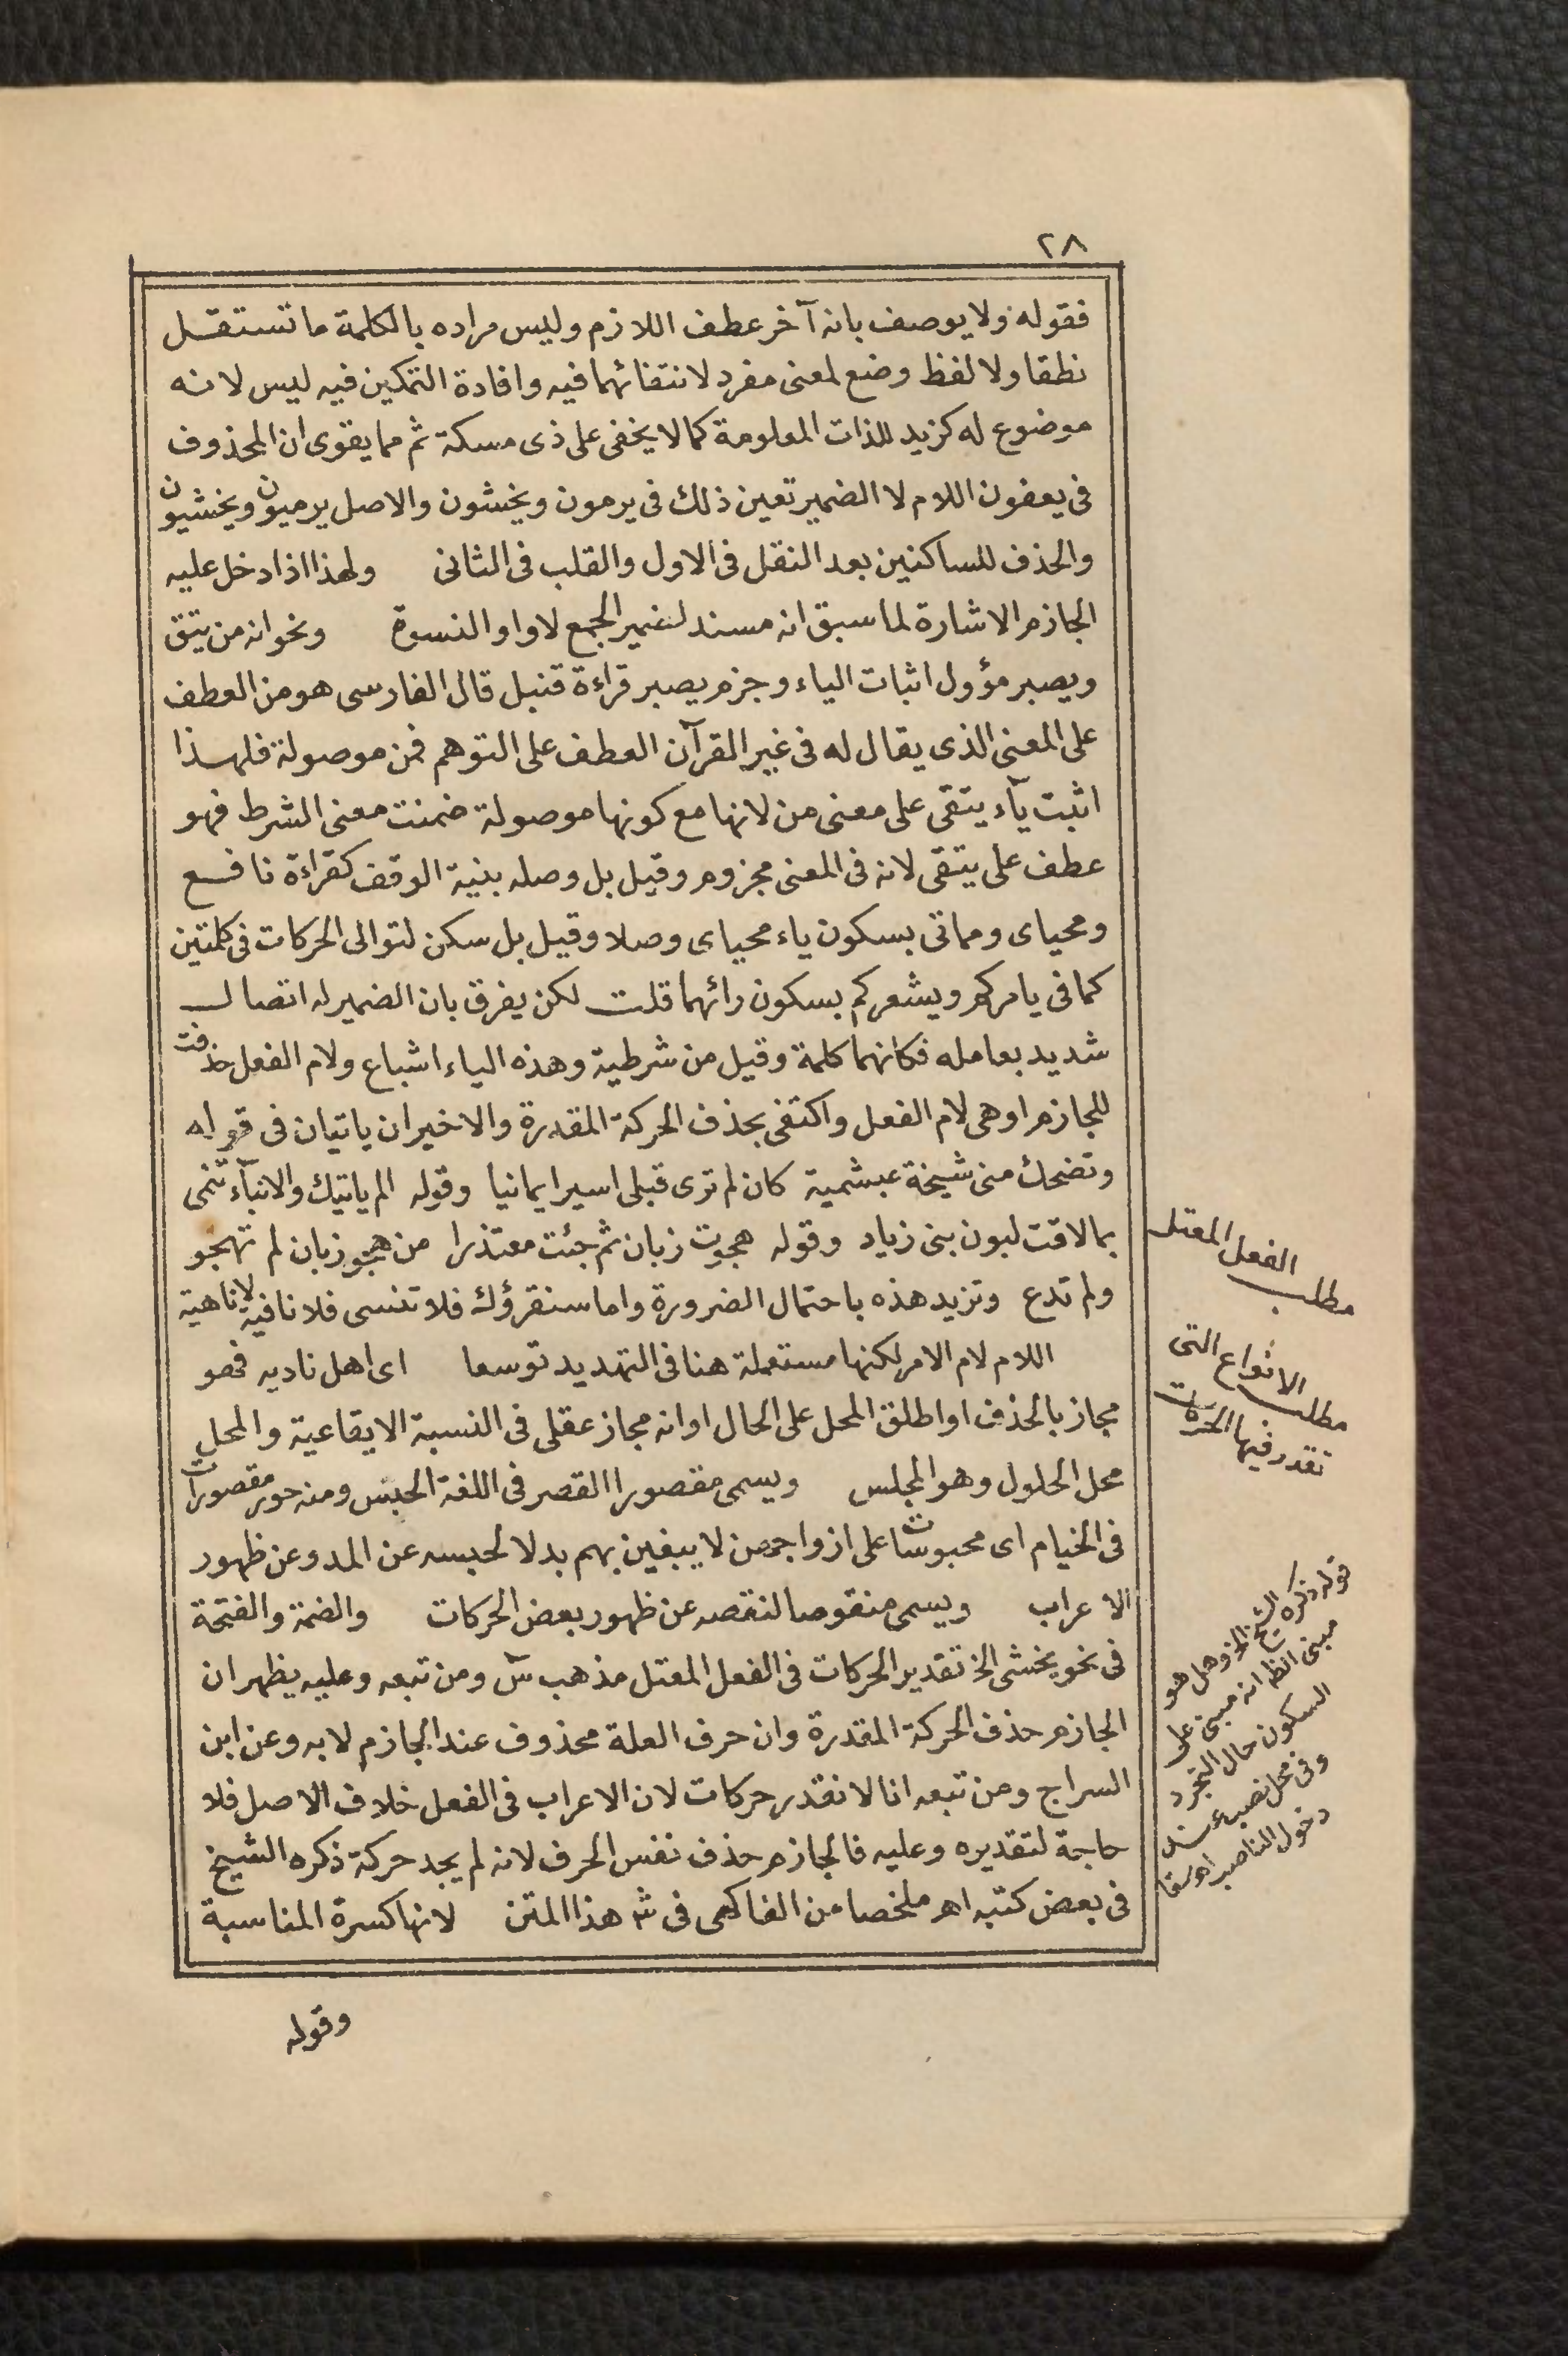 ٢٨
فقوله ولا يوصف بانه آخر عطف اللازم وليس مراده بالكلمة ما تستقل
نطقا ولا لفظ وضع لمعنى مفرد لانتفائهما فيه وافادة التمكين فيه ليس لانه
موضوع له كزيد للذات المعلومة كما لا يخفى على ذى مسكة ثم مما يقوى ان المحذوف
فى يعفون اللام لا الضمير تعين ذلك فى يرمون ويخشون والاصل يرميون ويخشيون
والحذف للساكنين بعد النقل فى الاول والقلب فى الثانى ولهذا اذا دخل عليه
الجازم الاشارة لما سبق انه مسند لضمير الجمع لا واو النسوة ونحو انه من يتق
ويصبر مؤول اثبات الياء وجزم يصبر قراءة قنبل قال الفارسى هو من العطف
على المعنى الذى يقال له فى غير القرآن العطف على التوهم فمن موصولة فلهذا
اثبت يآء يتقى على معنى من لانها مع كونها موصولة ضمنت معنى الشرط فهو
عطف على يتقى لانه فى المعنى مجزوم وقيل بل وصله بنية الوقف كقراءة نافع
ومحياى ومماتى بسكون ياء محياى وصلا وقيل بل سكن لتوالى الحركات فى كلمتين
كما فى يامركم ويشعركم بسكون رائهما قلت لكن يفرق بان الضمير له اتصال
شديد بعامله فكانهما كلمة وقيل من شرطية وهذه الياء اشباع ولام الفعل حذفت
للجازم او هى لام الفعل واكتفى بحذف الحركة المقدرة والاخيران ياتيان فى قوله
وتضحك منى شيخة عبشمية كان لم ترى قبلى اسيرا يمانيا وقوله الم ياتيك والانبآء تنمى
بما لاقت لبون بنى زياد وقوله هجوت زبان ثم جئت معتذرا من هجو زبان لم تهجو
ولم تدع وتزيد هذه باحتمال الضرورة واما سنقرؤك فلا تنسى فلا نافية لا ناهية
اللام لام الامر لكنها مستعملة هنا فى التهديد توسعا اى اهل ناديه فهو
مجاز بالحذف او اطلق المحل على الحال او انه مجاز عقلى فى النسبة الايقاعية والمحل
محل الحلول وهو المجلس ويسمى مقصورا القصر فى اللغة الحبس ومنه حور مقصورات
فى الخيام اى محبوسات على ازواجهن لا يبغين بهم بدلا لحبسه عن المد وعن ظهور
الاعراب ويسمى منقوصا لنقصه عن ظهور بعض الحركات والضمة والفتحة
فى نحو يخشى الخ تقدير الحركات فى الفعل المعتل مذهب س ومن تبعه وعليه يظهر ان
الجازم حذف الحركة المقدرة وان حرف العلة محذوف عند الجازم لا به وعن ابن
السراج ومن تبعه انا لا نقدر حركات لان الاعراب فى الفعل خلاف الاصل فلا
حاجة لتقديره وعليه فالجازم حذف نفس الحرف لانه لم يجد حركة ذكره الشيخ
فى بعض كتبه اهـ ملخصا من الفاكهى فى ش هذا المتن لانها كسرة المناسبة
وقوله
مطلب
الفعل المعتل
مطلب الانواع التى
تقدر فيها الحركات
قوله ذكره الشيخ الخ وهل هو
مبنى انظه انه مبنى على
السكون حال التجرد
وفى محل نصب عند
دخول الناصب